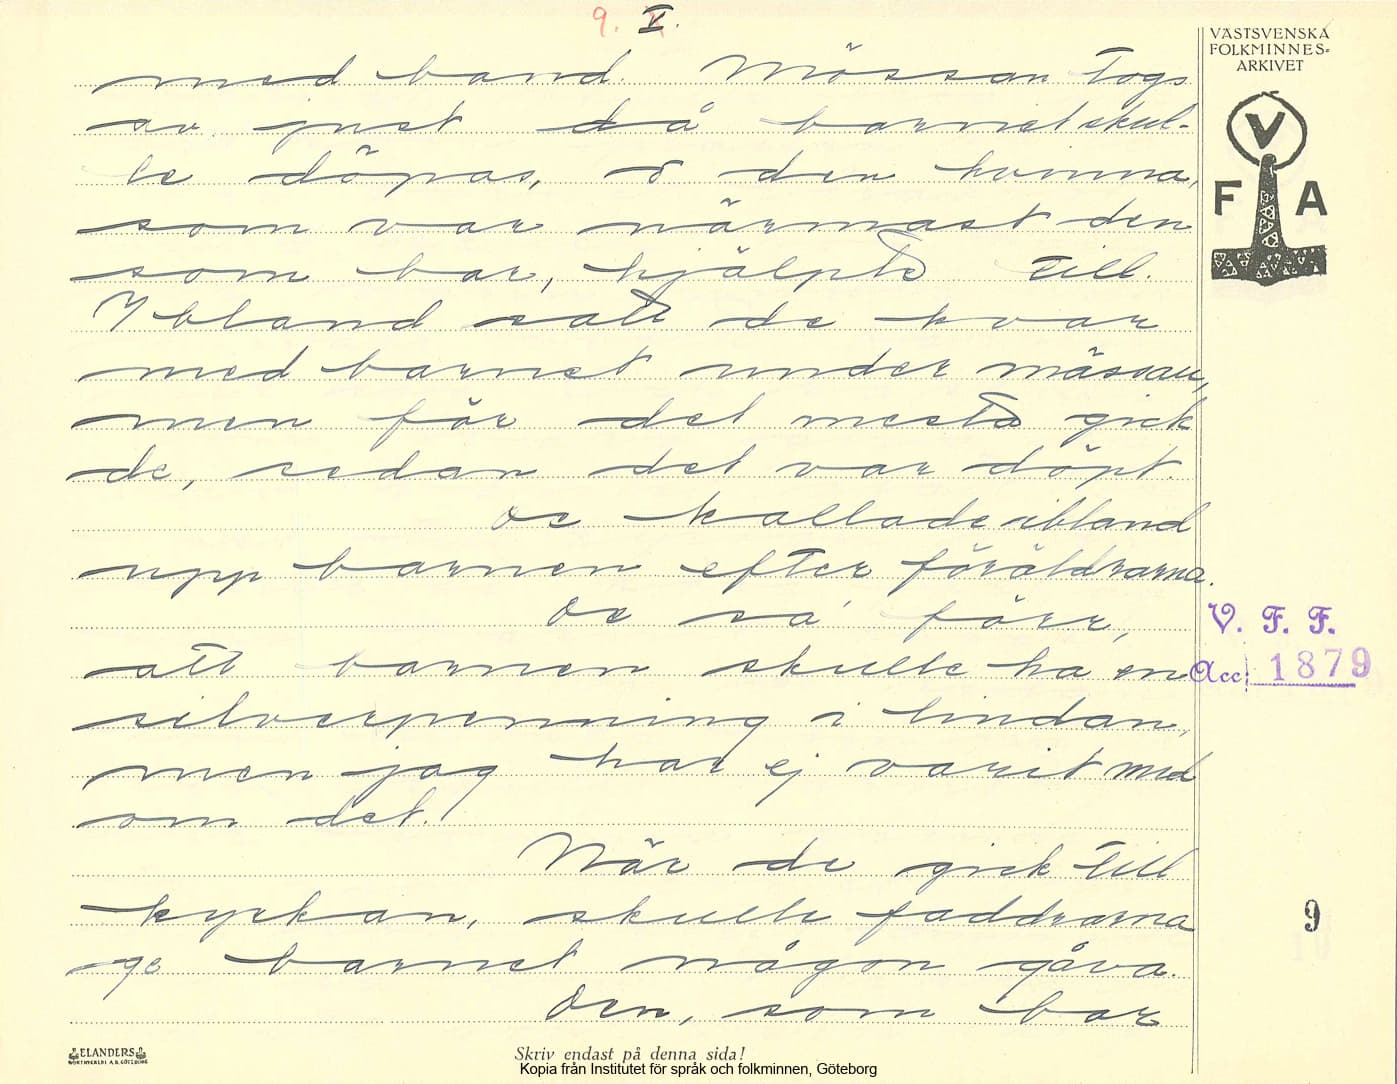 9. V.
VÄSTSVENSKA
FOLKMINNES-
ARKIVET
V
F A
med band. Mössan togs
av just då barnet skul-
le döpas, o den kvinna,
som var närmast den
som bar, hjälpte till.
Ibland satt de kvar
med barnet under mässan,
men för det mesta gick
de, sedan det var döpt.
De kallade ibland
upp barnen efter föräldrarna.
De sa' förr,
att barnen skulle ha en
silverpenning i lindan,
men jag har ej varit med
om det.
När de gick till
kyrkan, skulle faddrarna
ge barnet någon gåva.
Den, som bar
V. F. F.
Acc. 1879
9
ELANDERS
Skriv endast på denna sida!
Kopia från Institutet för språk och folkminnen, Göteborg